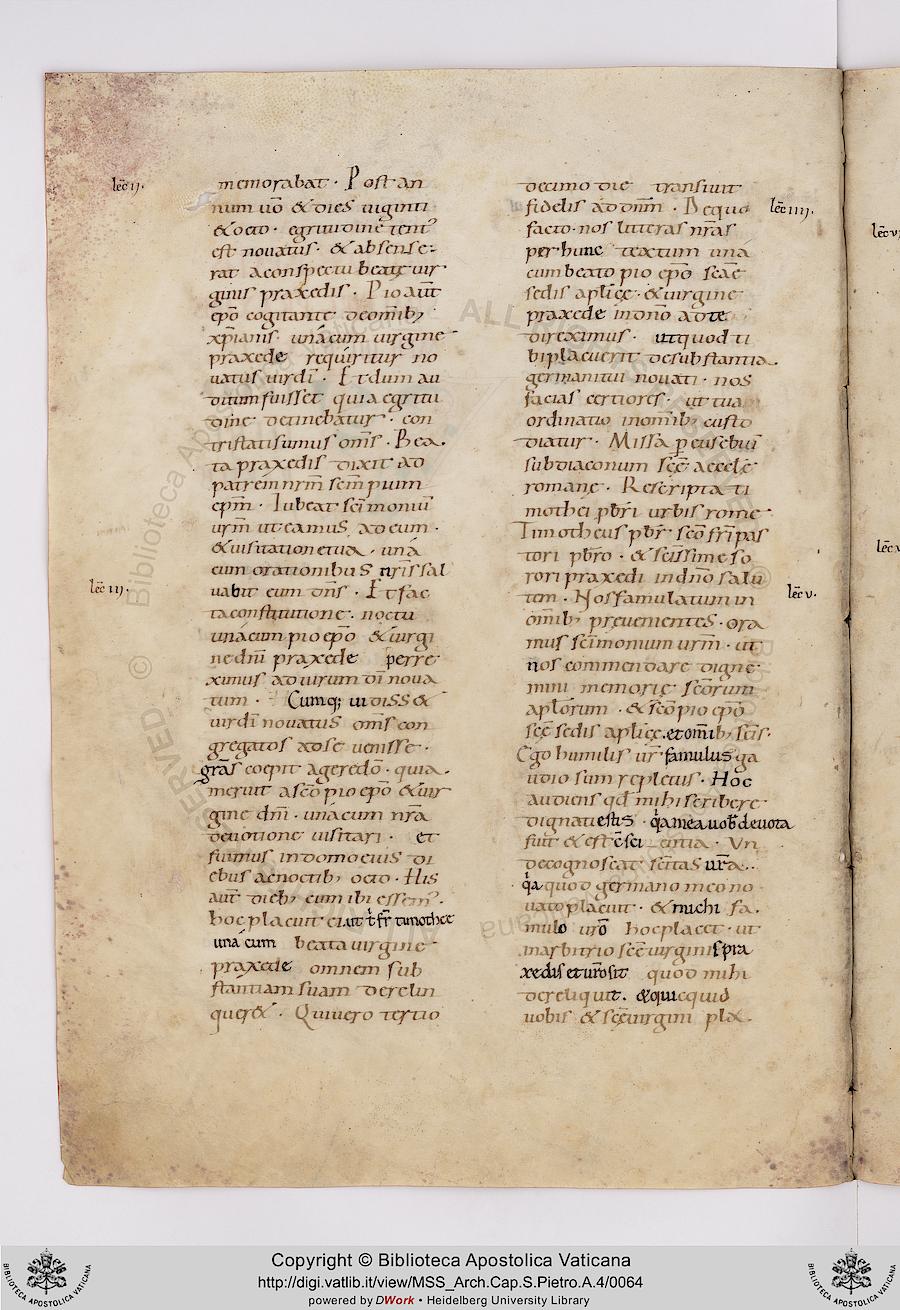 lec̄ ij.
memorabat · Post an
num ūo & dies uiginti
& octo · egritudine tent᷒
est nouatus · & absense
rat aconspectu beatę uir
ginis praxedis · Pio aūt
ep̄o cogitante deomīb;
xp̄ianis · unacum uirgine
praxede requiritur no
uatus uir dī · Et dum au
ditum fuisset quia egritu
dine detinebatur · con
tristatisumus om̄s · Bea
ta praxedis dixit ad
patrem nr̄m sc̄m pium
ep̄m · Iubeat sc̄imoniū
ur̄m ut eamus ad eum ·
& uisitationetua · una
cum orationibus nr̄is sal
lec̄ iij.
uabit eum dn̄s · Et fac
ta constitutione · noctu
unacum pio ep̄o & uirgi
ne dn̄i praxede perre
ximus ad uirum dī noua
tum · Cumq; uidiss&
uir dī nouatus om̄s con
gregatos adse uenisse ·
gr̄as coepit agere dō · quia
meruit asc̄o pio ep̄o & uir
gine dn̄i · unacum nr̄a
deuotione uisitari · et
fuimus indomo eius di
ebus acnoctib; octo · His
aut̄ dieb; cum ibi essem᷒ ·
hoc placuit ei ut t̄ fr̄ timothee
una cum beata uirgine
praxede omnem sub
stantiam suam derelin
quer& · Qui uero tertio
decimo die transiuit
fidelis ad dn̄m · De quo
lec̄ iiij.
facto nos litteras nr̄as
per hunc textum una
cum beato pio ep̄o sc̄ae
sedis aplicę · & uirgine
praxede in dn̄o ad te
direximus · ut quod ti
bi placuerit desubstantia
germani tui nouati · nos
facias certiores · ut tua
ordinatio inomīb; custo
diatur · Missa p eusebiū
subdiaconum sc̄ę accele
romane · Rescripta ti
mothei pb̄ri urbis rome
Timotheus pb̄r · sc̄o fr̄i pas
tori pb̄ro · & sc̄issime so
rori praxedi in dn̄o salu
lec̄ v.
tem · Nos famulatum in
omīb; preuenientes · ora
mus sc̄imonium ur̄m · ut
nos commendare digne
mini memorię sc̄orum
aplorum · & sc̄o pio ep̄o
sc̄ę sedis aplicę. et omīb; sc̄is.
Ego humilis ur̄ famulus ga
udio sum repletus · Hoc
audiens qd mihi scribere
dignati estis · q̄a mea uob̄ deuota
fuit & est c̄sci entia · Un
de cognoscat sc̄itas ur̄a ..
q̄a quod germano meo no
uato placuit · & michi fa
mulo ur̄o hoc placet · ut
in arbitrio sc̄ę uirginis pra
xedis et ur̄o sit quod mihi
dereliquit. & quicquid
uobis & sc̄ę uirgini pla
lec̄ v
Copyright © Biblioteca Apostolica Vaticana
http://digi.vatlib.it/view/MSS_Arch.Cap.S.Pietro.A.4/0064
powered by DWork • Heidelberg University Library